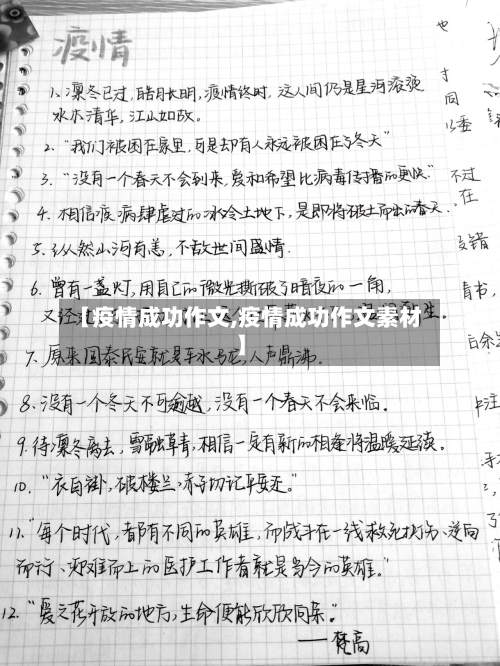 疫情
1、凛冬已过,皓月长明,疫情终时,这人间仍是星河滚烫
水木清华,江山如故。
2、“我们被困在家里,可是却有人永远被困在了冬天”
3、“没有一个春天不会到来,爱和希望比病毒传播的更快”
4、相信疫病肆虐过的冰冷土地下,是即将破土而出的春天。
5、纵然山河有恙,不敌世间盛情.
6、曾有一盏灯,用自己的微光撕破了暗夜的一角,
又经
生。
【疫情成功作文,疫情成功作文素材
】
7、原来国泰民安就是车水马龙,人声鼎沸.
8、没有一个冬天不可逾越,没有一个春天不会来临。
9、待凛冬离去,雪融草青,相信一定有新的相逢将温暖延续。
10、“衣白褂,破楼兰,赤子切记平安还。”
11、“每个时代,都有不同的英雄,而战斗在一线救死扶伤、逆向
而行、迎难而上的医护工作者就是当今的英雄。”
12、“爱之花开放的地方,生命便能欣欣向荣。”
——梵高
也
寸
同
以委
不过
在
青书,
白余